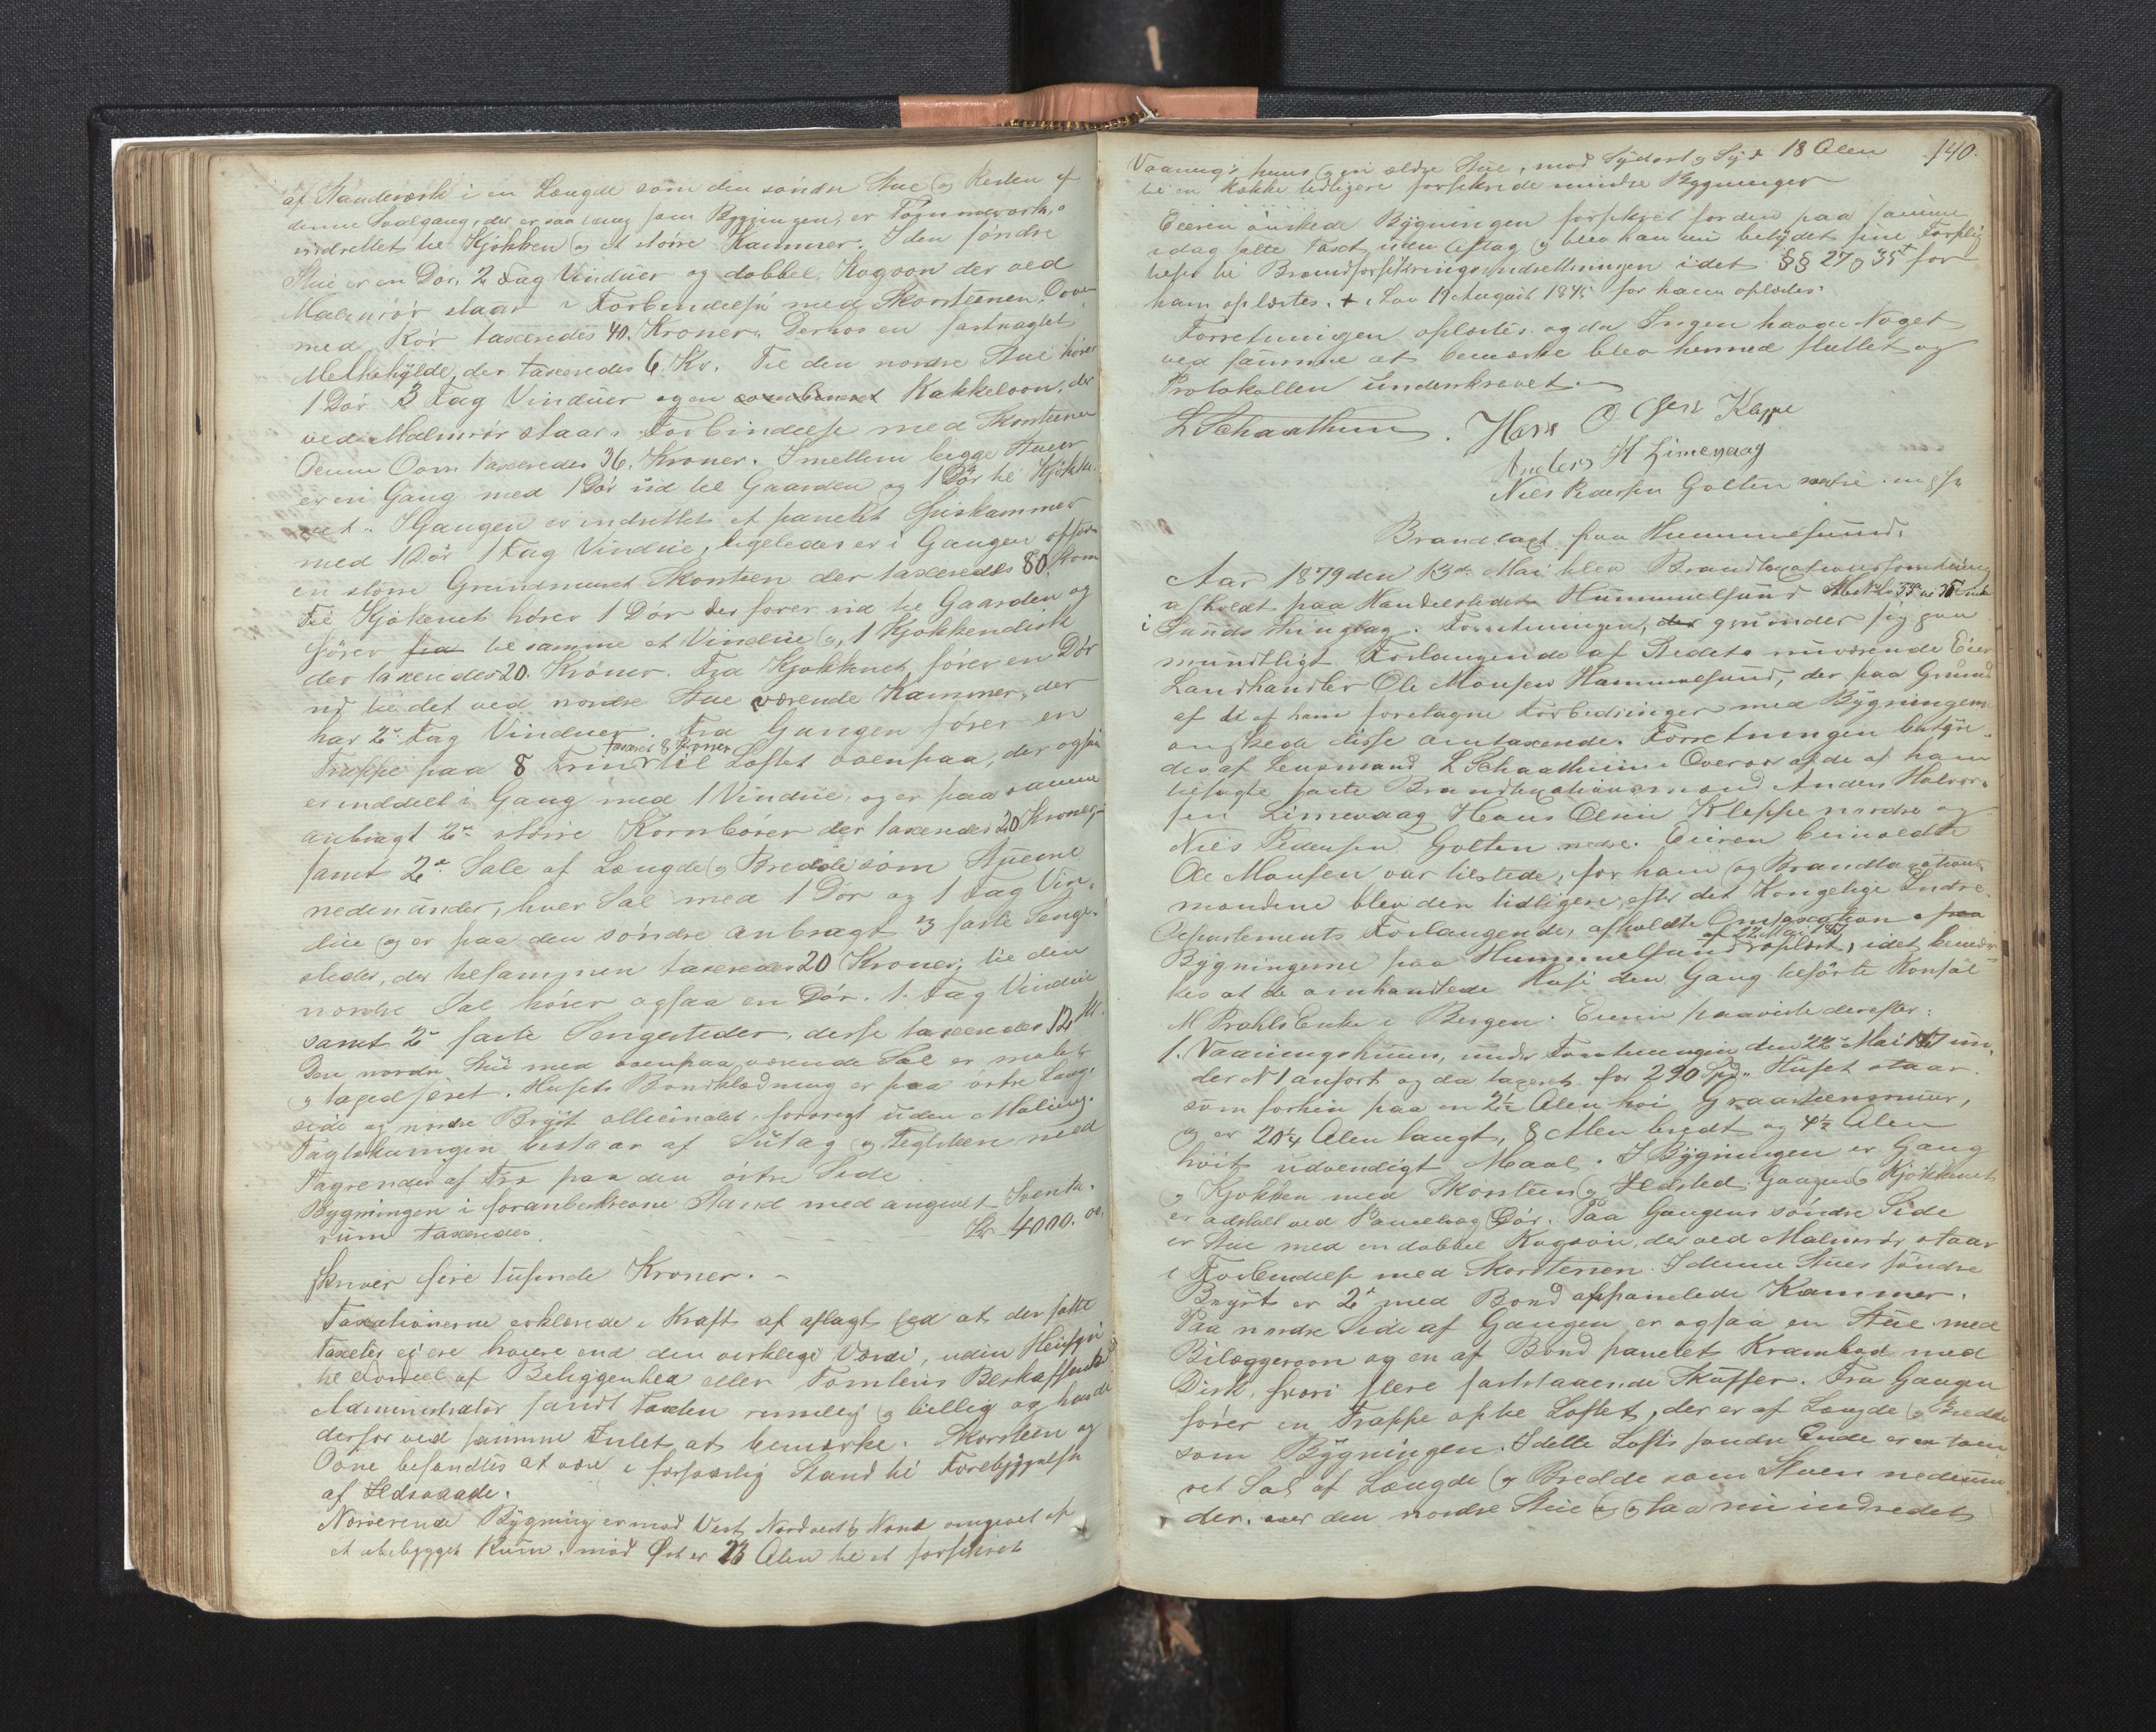 af Standværk i en Længde som den søndre Stue og Resten af
denne Svalgang, der er saa lang som Bygningen, er Tømmerværk,
indrettet til Kjøkken og et større Kammer. I den søndre
Stue er en Dør, 2 Fag Vinduer og dobbel Kogoon der ved
Malmrør staar i Forbindelse med Skorstenen. Ovnen
med Rør taxeredes 40 Kroner. Derhos en fastnaglet
Melkehylde, der taxeredes 6. Kr. Til den nordre Stue hører
1 Dør 3 Fag Vinduer og en combineret Kakkeloon, der
ved Malmrør staar i Forbindelse med Skorstenen
Denne Oovn taxeredes 36. Kroner. Imellem begge Stuer
er en Gang med 1 Dør ud til Gaarden og 1 Dør til Kjøkke
net. I Gangen er indrettet et panelet Spiskammer
med 1 Dør 1 Fag Vindue, ligeledes er i Gangen opført
en større Grundmuret Skorsten der taxeredes 80 Kroner
Til Kjøkenet hører 1 Dør der fører ud til Gaarden og
hører fra til samme et Vindue og 1 Kjøkkendisk
der taxeredes 20. Kroner. Fra Kjøkkenet fører en Dør
ud til det ved nordre Stue værende Kammer, der
har 2 Fag Vinduer. Fra Gangen fører en
taxeret 8 Kroner
Trappe paa 8 Trin til Loftet ovenpaa, der ogsaa
er inddelt i Gang med 1 Vindue, og er paa samme
anbragt 2de større Kornbører der taxeredes 20 Kroner,
samt 2de Sale af Længde og Bredde som Stuerne
nedenunder, hver Sal med 1 Dør og 1 Fag Vin-
due og er paa den søndre anbragt 3 faste Senge-
steder, der tilsammen taxeredes 20 Kroner; til den
nordre Sal hører ogsaa en Dør. 1. Fag Vindue
samt 2 faste Sengesteder, disse taxeredes 12 Kr.
Den nordre Stue med ovenpaa værende Sal er malet
og tapedseret. Husets Bordklædning er paa østre Lang-
side og nordre Bryst olliemalet, forøvrigt uden Maling.
Tagtækningen bestaar af Sutag og Teglsteen med
Tagrender af Træ paa den østre Side
Bygningen i foranbeskrevne Stand med angivet Inventa-
rium taxeredes - - - Kr 4000. 00.
skriver fire tusinde Kroner. -
Taxationerne erklærede i Kraft af aflagt Ed at den satte
Taxt ei er høiere end den virkelige Værdi, uden Hensyn
til Fordeel af Beliggenhed eller Tomtens Beskaffenhed
Administrator fandt Taxten rimelig og billig og havde
derfor ved samme Intet at bemærke. Skorsteen og
Oone befandtes at være i forsvarlig Stand til Forebyggelse
af Ildsvaade.
Nærværende Bygning er mod Vest, Nordvest og Nord omgivet af
et ubebygget Rum, mod Øst er 23 Alen til et forsikret
140.
Vaanings huus og en ældre Stue, mod Sydost og Syd 18 Alen
til en Række tidligere forsikrede mindre Bygninger
Eieren ønskede Bygningen forsikret for den paa samme
idag satte Taxt uden Afslag og blev han nu betydet sine Forplig
telser til Brandforsikringsindretningen idet §§ 27 og 35 + for
ham oplæstes. + i Lov 19 August 1845 for ham oplæstes.
Forretningen oplæstes og da Ingen havde Noget
ved samme at bemærke blev hermed sluttet og
Protokollen underskrevet.
L Schaathun. Hans Olsen Kleppe
Anders H Limevaag
Niels Pedersen Golten
Brandtaxt paa Hummelsund.
Aar 1879 den 13de Mai blev Brandtaxationsforretning
afholdt paa Handelsstedet Hummelsund
i Sunds Thinglag. Forretningen, der grunder sig paa
mundtligt Forlangende af Stedets nuværende Eier
Landhandler Ole Monsen Hummelsund, der paa Grund
af de af ham foretagne Forbedringer med Bygningerne
ønskede disse omtaxerede. Forretningen betyn-
des af Lensmand L Schaathun i Overvær af de af ham
tilsagte faste Brandtaxationsmænd Anders Halvor-
sen Limevaag Hans Olsen Kleppe nordre og
Niels Pedersen Golten nedre. Eieren bemeldte
Ole Monsen var tilstede, for ham og Brandtaxations
mændene blev den tidligere, efter det Kongelige Indre-
Departements Forlangende, afholdte Omtaxation paa
af 22 Mai 1867
Bygningerne paa Hummelsund oplæst, idet bemær-
kes at de omhandlede Huse den Gang tilhørte Konsul
M Prahls Enke i Bergen. Eieren paaviste derefter:
1. Vaaningshuus, under Forretningen den 22de Mai 1867 un-
der N 1 anført og da taxeret for 290 Spd. Huset staar
som forhen paa en 2½ Alen høi Graasteensmuur,
og er 20¼ Alen langt, 8 Alen bredt og 4½ Alen
høit udvendigt Maal. I Bygningen er Gang
og Kjøkken med Skorsteen og Ildsted. Gangen og Kjøkkenet
er adskilt ved Panelvæg og Dør. Paa Gangens søndre Side
er Stue med en dobbel Kogoon, der ved Malmrør staar
i Forbindelse med Skorstenen. I denne Stues søndre
Bryst er 2de med Bord afpanelede Kammer.
Paa nordre Side af Gangen er ogsaa en Stue med
Bilæggeroon og en af Bord panelet Krambod med
Disk, hvori flere fastslaaende Skuffer. Fra Gangen
fører en Trappe op til Loftet, der er af Længde og Bredde
som Bygningen. I dette Lofts søndre Ende er en tøm-
ret Sal af Længde og Bredde som Stuen nedenun
der. over den nordre Stue er ogsaa nu indredet